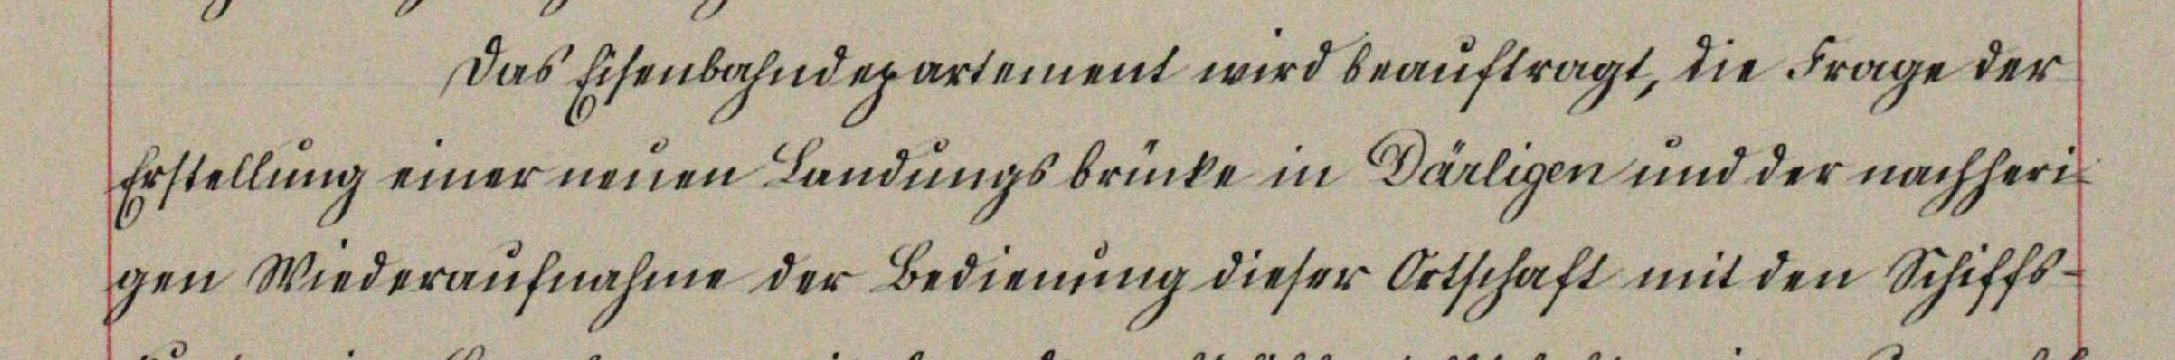 Das Eisenbahndepartement wird beauftragt, die Frage der
Erstellung einer neuen Landungsbrücke in Därligen und der nachheri-
gen Wiederaufnahme der Bedienung dieser Ortschaft mit den Schiffs-